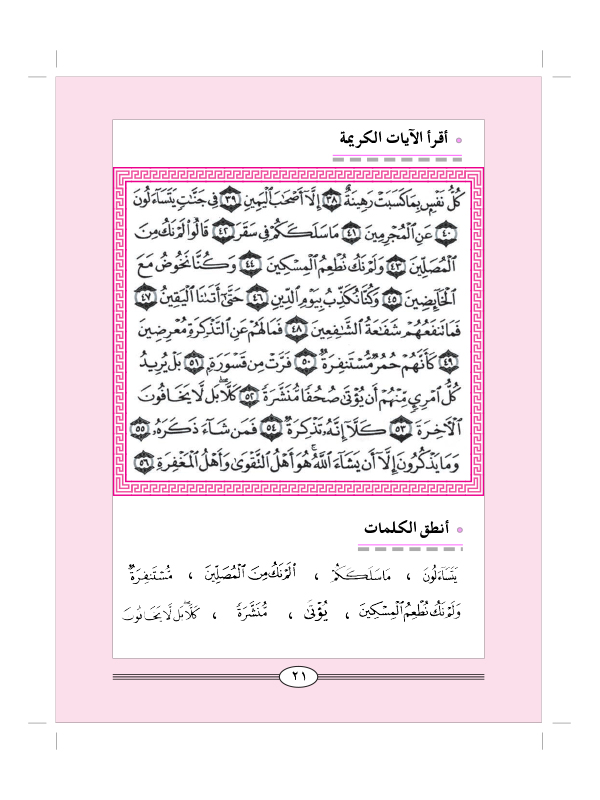 أقرأ الآيات الكريمة
كُلُّ نَفْسٍۭ بِمَا كَسَبَتْ رَهِينَةٌ ٣٨ إِلَّآ أَصْحَٰبَ ٱلْيَمِينِ ٣٩ فِى جَنَّٰتٍ يَتَسَآءَلُونَ
٤٠ عَنِ ٱلْمُجْرِمِينَ ٤١ مَا سَلَكَكُمْ فِى سَقَرَ ٤٢ قَالُوا۟ لَمْ نَكُ مِنَ
ٱلْمُصَلِّينَ ٤٣ وَلَمْ نَكُ نُطْعِمُ ٱلْمِسْكِينَ ٤٤ وَكُنَّا نَخُوضُ مَعَ
ٱلْخَآئِضِينَ ٤٥ وَكُنَّا نُكَذِّبُ بِيَوْمِ ٱلدِّينِ ٤٦ حَتَّىٰٓ أَتَىٰنَا ٱلْيَقِينُ ٤٧
فَمَا تَنفَعُهُمْ شَفَٰعَةُ ٱلشَّٰفِعِينَ ٤٨ فَمَا لَهُمْ عَنِ ٱلتَّذْكِرَةِ مُعْرِضِينَ
٤٩ كَأَنَّهُمْ حُمُرٌ مُّسْتَنفِرَةٌ ٥٠ فَرَّتْ مِن قَسْوَرَةٍۭ ٥١ بَلْ يُرِيدُ
كُلُّ ٱمْرِئٍ مِّنْهُمْ أَن يُؤْتَىٰ صُحُفًا مُّنَشَّرَةً ٥٢ كَلَّا ۖ بَل لَّا يَخَافُونَ
ٱلْءَاخِرَةَ ٥٣ كَلَّآ إِنَّهُۥ تَذْكِرَةٌ ٥٤ فَمَن شَآءَ ذَكَرَهُۥ ٥٥
وَمَا يَذْكُرُونَ إِلَّآ أَن يَشَآءَ ٱللَّهُ ۚ هُوَ أَهْلُ ٱلتَّقْوَىٰ وَأَهْلُ ٱلْمَغْفِرَةِ ٥٦
أنطق الكلمات
يَتَسَآءَلُونَ ، مَا سَلَكَكُمْ ، لَمْ نَكُ مِنَ ٱلْمُصَلِّينَ ، مُّسْتَنفِرَةٌ
وَلَمْ نَكُ نُطْعِمُ ٱلْمِسْكِينَ ، يُؤْتَىٰ ، مُّنَشَّرَةً ، كَلَّا ۖ بَل لَّا يَخَافُونَ
٢١